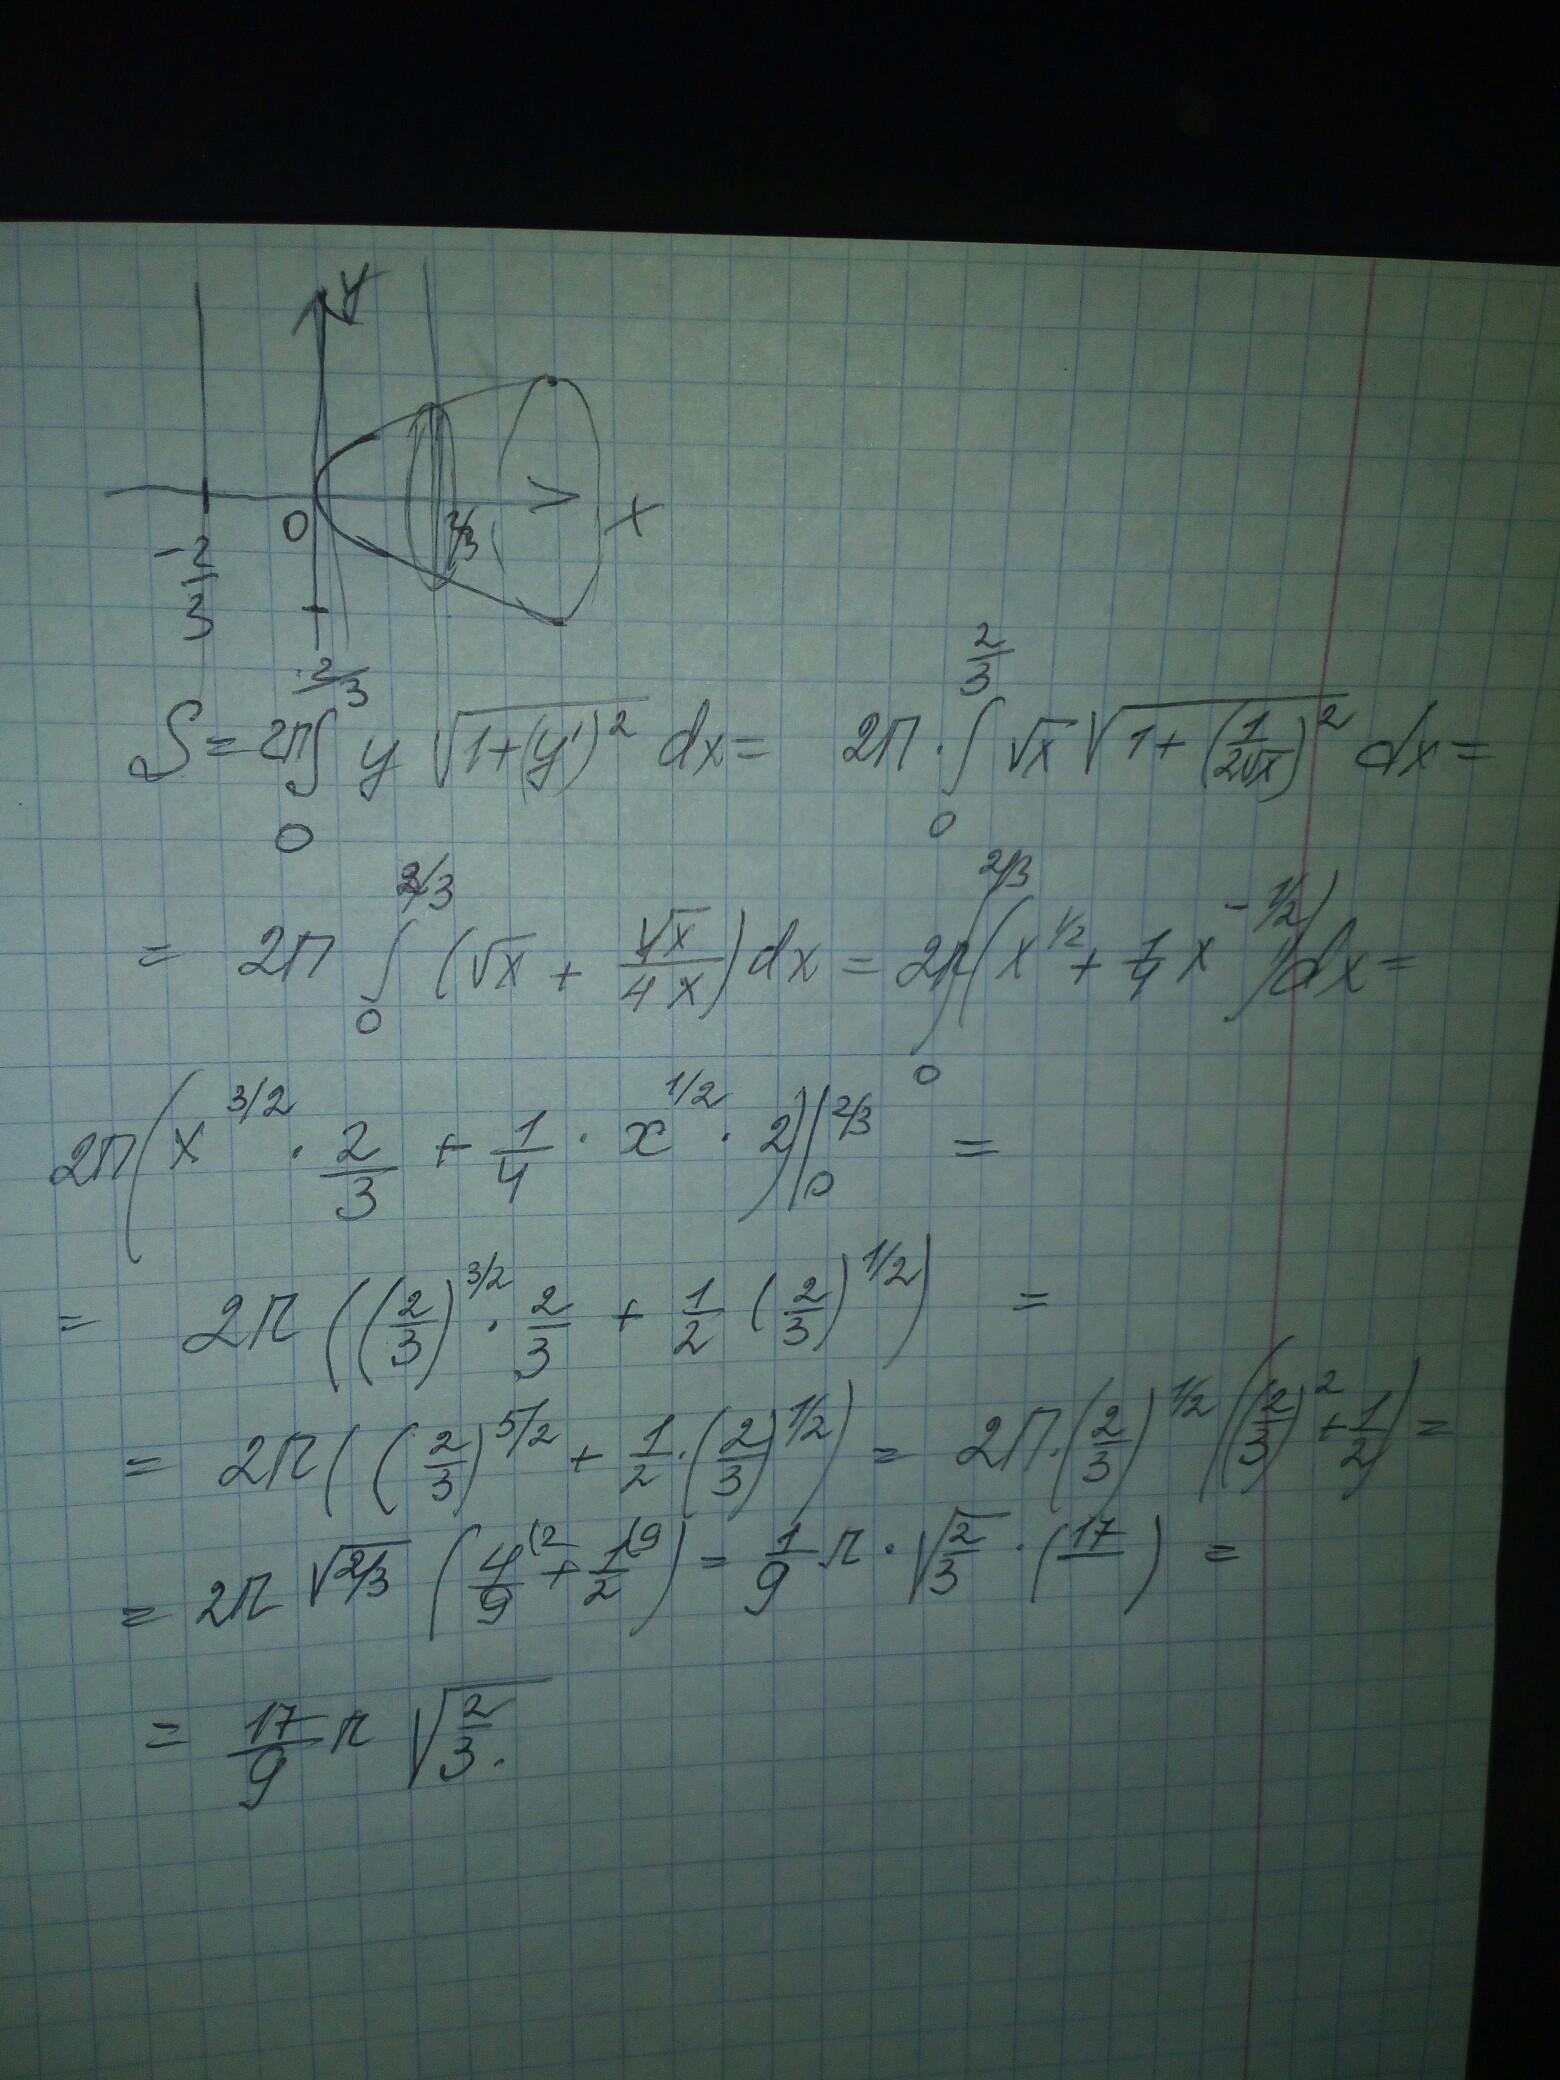 y
0
2/3
x
-2/3
S = 2π ∫₀^(2/3) y √(1+(y')²) dx = 2π · ∫₀^(2/3) √x √(1+(1/(2√x))²) dx =
= 2π ∫₀^(2/3) (√x + √x/(4x)) dx = 2π ∫₀^(2/3) (x^(1/2) + 1/4 x^(-1/2)) dx =
2π (x^(3/2) · 2/3 + 1/4 · x^(1/2) · 2)|₀^(2/3) =
= 2π ((2/3)^(3/2) · 2/3 + 1/2 (2/3)^(1/2)) =
= 2π ((2/3)^(5/2) + 1/2 · (2/3)^(1/2)) = 2π · (2/3)^(1/2) ((2/3)² + 1/2) =
= 2π √(2/3) (4/9 (2 + 1/2 (9) = 1/9 π · √(2/3) · (17) =
= 17/9 π √(2/3).